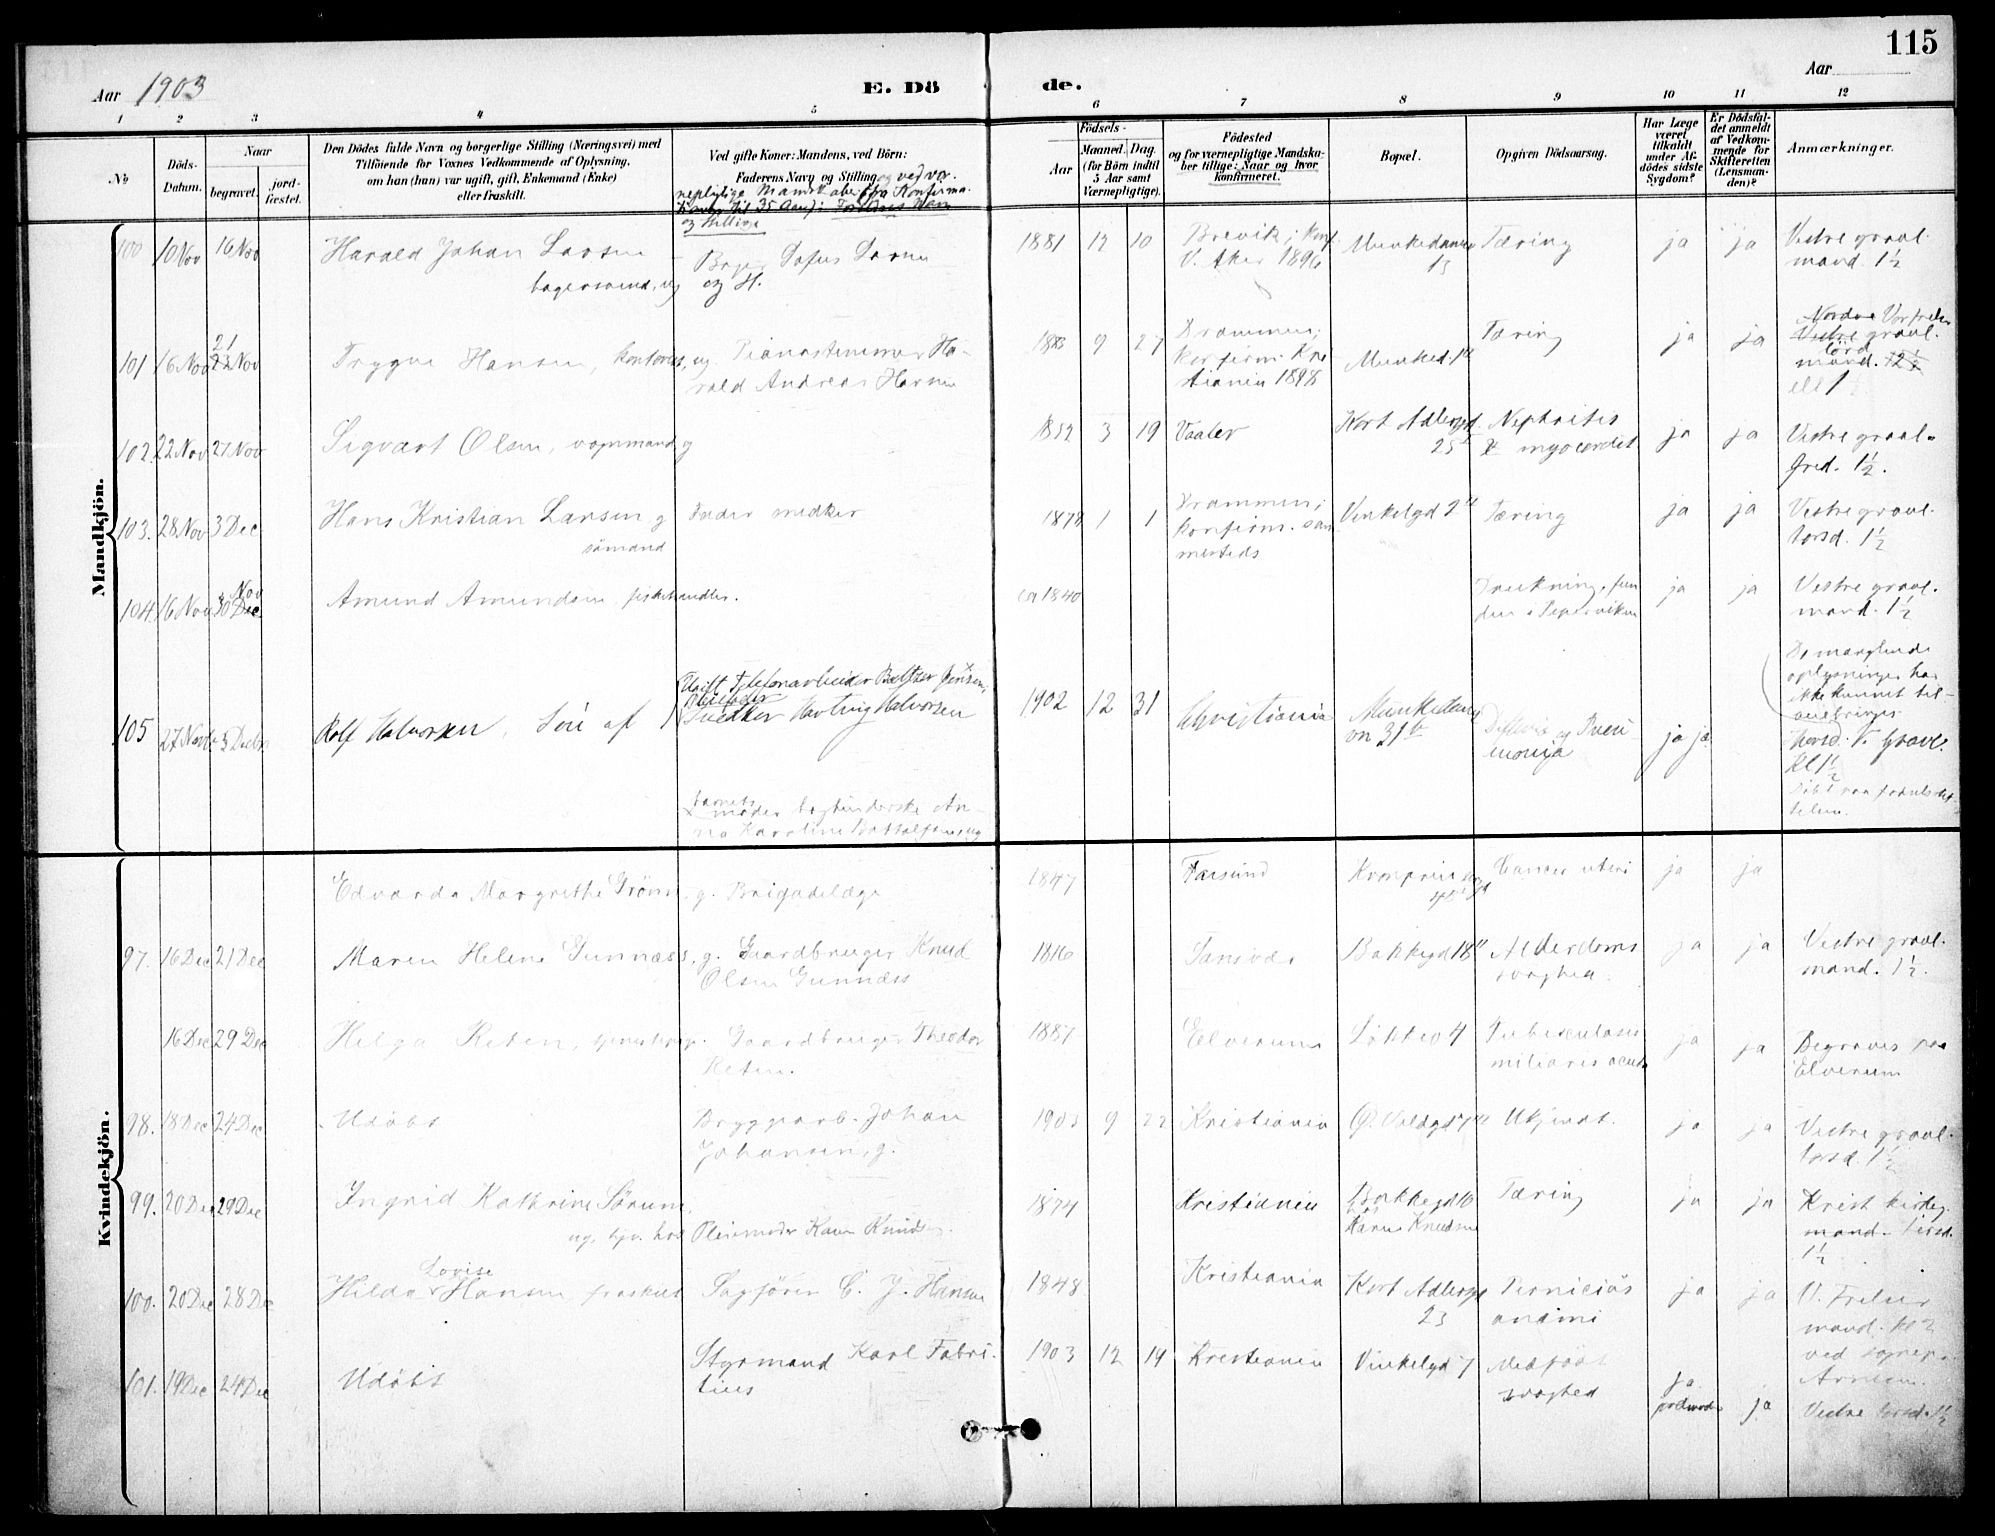 115
Aar 1903
E. Dö de.
Aar
1 2 3 4 5 6 7 8 9 10 11 12
No
Döds-Datum.
Naar
begravet.
jord-fæstet.
Den Dödes fulde Navn og borgerlige Stilling (Næringsvei) med
Tilföiende for Voxnes Vedkommende af Oplysning,
om han (hun) var ugift, gift, Enkemand (Enke)
eller fraskilt.
Ved gifte Koner: Mandens, ved Börn:
Faderens Navn og Stilling og ved vær-
nepligtige Mandskaber fra Konfirma-
tionen til 35 Aar: Forældres Navn
og Stilling
Födsels-
Aar
Maaned. Dag.
(for Börn indtil
5 Aar samt
Værnepligtige).
Födested
og for værnepligtige Mandska-
ber tillige: Naar og hvor
konfirmeret.
Bopæl.
Opgiven Dödsaarsag.
Har Læge
været
tilkaldt
under Af-
dödes sidste
Sygdom?
Er Dödsfal-
det anmeldt
af Vedkom-
mende for
Skifteretten
(Lensman-
den)?
Anmærkninger.
Mandkjön.
100 10 Nov 16 Nov Harald Johan Larsen
bagersvend, ug
og H.
1881 12 10 Brevik; konf.
V. Aker 1896
Munkedamsv
13
Tæring ja ja Vestre gravl.
mand. 1½
101 16 Nov 21 23 Nov Trygve Hansen, kontorist, ug. Pianostemmer Ha-
rald Andreas Hansen
1883 9 27 Drammen;
konfirm. Kri
stiania 1898
Munked. 1
Tæring ja ja Nordre Vor frelser
Vestre gravl.
lörd
mand. 12½
ell 1
102. 22 Nov 27 Nov Sigvart Olsen, vognmand g
1852 3 19 Vaaler Kort Adlersgd
25
Nephritis
& myocardit ja ja Vestre gravl.
fred. 1½.
103. 28 Nov 3 Dec Hans Kristian Larsen g
sömand
Fader snedker
1878 1 1 Drammen;
konfirm. sam
mesteds
Vinkelgd 2
Tæring ja ja Vestre gravl.
torsd. 1½
104. 16 Nov 30 Nov Dec Amund Amundsen, fiskehandler.
ca 1840
Drukning, fun
den i Pipervviken ja ja Vestre gravl.
mand. 1½
De manglende
oplysninger har
ikke kunnet til-
veiebringes
105 27 Nov 3 Decbr Rolf Halvorsen, Sön af
Ugift Telefonarbeider Baltzer Jensen,
Pleiefader
Snedker Hartvig Halvorsen
barnets
moder bogbinderske An-
na Karoline
1902 12 31 Christiania Munkedams
vn 31 b
og Pneu
monia
ja ja
torsd. V. Gravl.
Kl 1½
Kvindekjön.
Edvarda Margrethe Grönn, g. Brigadelæge
1847 Farsund Kronprinsens gd
Cancer uteri ja ja
97. 16 Dec 21 Dec Maren Helene Gunnæss, g. Gaardbruger Knud
Olsen Gunnæss
1816 Bakkegd 18 Alderdoms
svaghed. ja ja Vestre gravl.
mand. 1½.
16 Dec 29 Dec Helga Reten, Gaardbruger Theodor
Reten.
1881 Elverum Løkkev 4 Tuberculosis
miliaris acuta ja ja Begraves paa
Elverum
98. 18 Dec 24 Dec Udöbt Bryggearb. Johan
Johansen, g.
1903 9 22 Kristiania Ø. Voldgd 7 Ukjendt. ja ja Vestre gravl.
torsd. 1½
99. 20 Dec 29 Dec Ingrid Kathrine Sörum,
ug, tjen. hos Pleiemoder Karen Knudsen.
1874 Kristiania Bakkegd 10
hos
Karen Knudsen
Tæring ja ja Krist kirkeg.
mand. tirsd.
1½
100. 20 Dec 28 Dec Hilda Lovise Hansen, fraskilt Sagförer C. J. Hansen
1848 Kristiania Kort Adlersgd
23
Perniciös
anämi ja ja V. Frelser
mand. kl 2
ved sognepr.
101. 19 Dec 24 Dec Udöbt Styrmand Karl Fabri-
tius
1903 12 19 Kristiania Vinkelgd 7 Medfödt
svaghed ja
jordmoder ja Vestre torsd. 1½